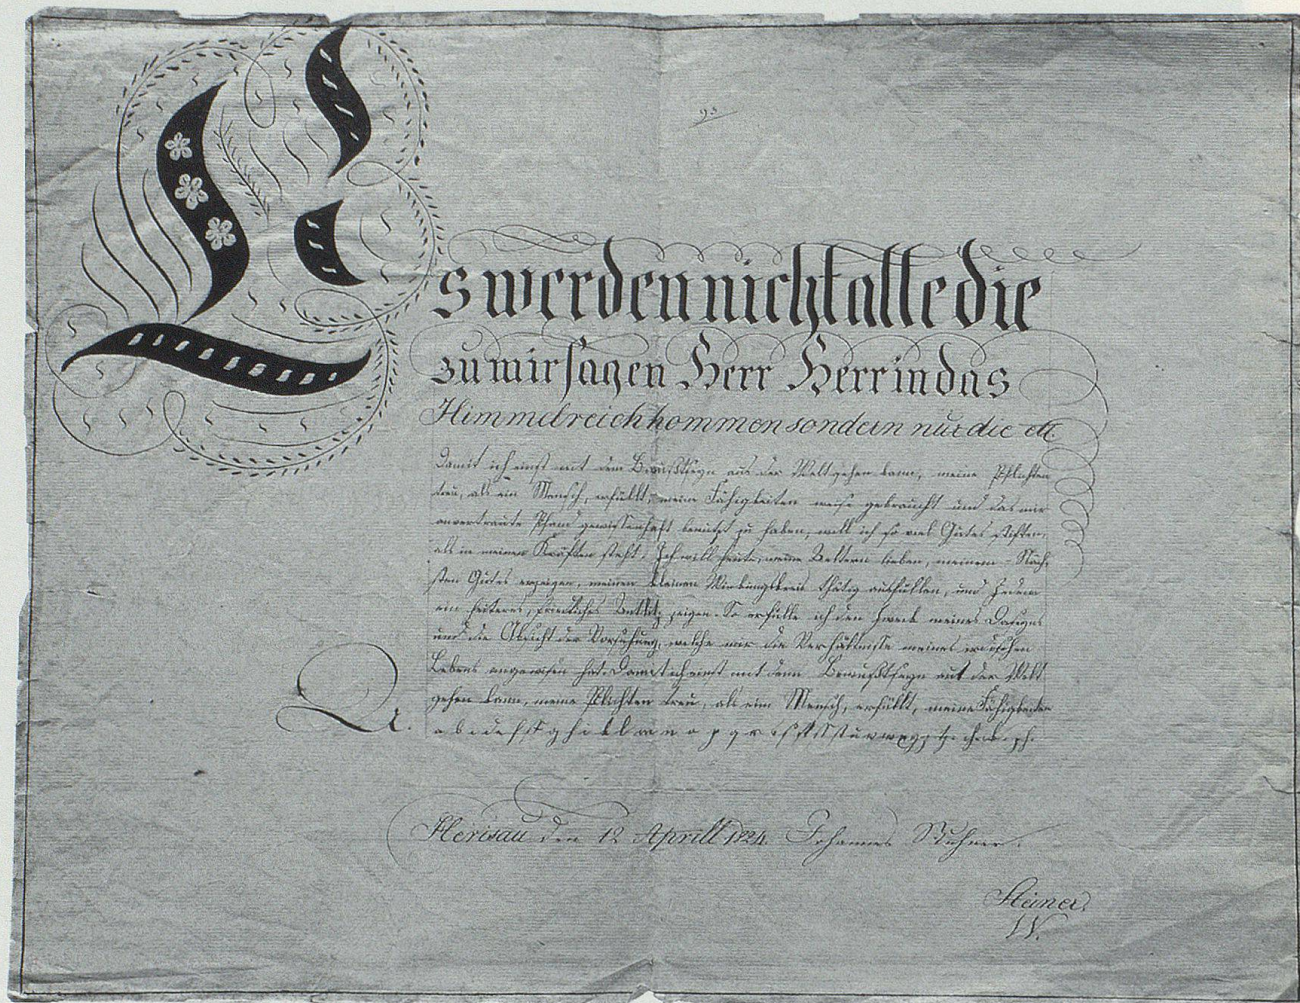 Es werden nicht alle die
zu mir sagen Herr Herr in das
Himmelreich kommen sondern nur die etc.
Damit ich einst mit dem Bewußtseyn aus der Welt gehen kann, meine Pflichten
treu, als ein Mensch, erfüllt, meine Fähigkeiten weise gebraucht und das mir
anvertraute Pfand gewissenhaft benützt zu haben, will ich so viel Gutes stiften,
als in meinen Kräften steht. Ich will heute, meine Aeltern lieben, meinem Näch-
sten Gutes erzeigen, meinen kleinen Wirkungskreis thätig ausfüllen, und Jedem
ein heiteres, friedliches Antlitz zeigen. So erfülle ich den Zweck meines Daseyns
und die Absicht der Vorsehung, welche mir die Verhältnisse meines irdischen
Lebens angewiesen hat. Damit ich einst mit dem Bewußtseyn aus der Welt
gehen kann, meine Pflichten treu, als ein Mensch, erfüllt, meine Fähigkeiten
Herisau den 12 Aprill 1824. Johannes